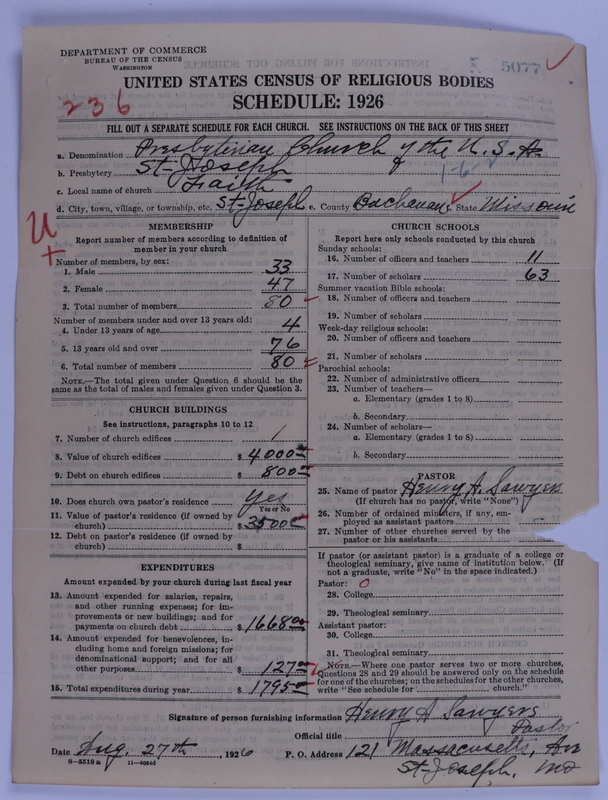 DEPARTMENT OF COMMERCE
BUREAU OF THE CENSUS
WASHINGTON
5077
UNITED STATES CENSUS OF RELIGIOUS BODIES
SCHEDULE: 1926
236
FILL OUT A SEPARATE SCHEDULE FOR EACH CHURCH. SEE INSTRUCTIONS ON THE BACK OF THIS SHEET
a. Denomination Presbyterian Church of the U.S.A.
b. Presbytery St-Joseph
c. Local name of church Faith
d. City, town, village, or township, etc. St-Joseph e. County Buchanan State Missouri
MEMBERSHIP
Report number of members according to definition of
member in your church
Number of members, by sex:
1. Male 33
2. Female 47
3. Total number of members 80
Number of members under and over 13 years old:
4. Under 13 years of age 4
5. 13 years old and over 76
6. Total number of members 80
NOTE.—The total given under Question 6 should be the
same as the total of males and females given under Question 3.
CHURCH BUILDINGS
See instructions, paragraphs 10 to 12
7. Number of church edifices 1
8. Value of church edifices $ 4000
9. Debt on church edifices $ 800
10. Does church own pastor's residence Yes
Yes or No
11. Value of pastor's residence (if owned by
church) $ 3500
12. Debt on pastor's residence (if owned by
church) $
EXPENDITURES
Amount expended by your church during last fiscal year
13. Amount expended for salaries, repairs,
and other running expenses; for im-
provements or new buildings; and for
payments on church debt $ 1668
14. Amount expended for benevolences, in-
cluding home and foreign missions; for
denominational support; and for all
other purposes $ 127
15. Total expenditures during year $ 1795
CHURCH SCHOOLS
Report here only schools conducted by this church
Sunday schools:
16. Number of officers and teachers 11
17. Number of scholars 63
Summer vacation Bible schools:
18. Number of officers and teachers
19. Number of scholars
Week-day religious schools:
20. Number of officers and teachers
21. Number of scholars
Parochial schools:
22. Number of administrative officers
23. Number of teachers—
a. Elementary (grades 1 to 8)
b. Secondary
24. Number of scholars—
a. Elementary (grades 1 to 8)
b. Secondary
PASTOR
25. Name of pastor Henry A. Sawyers
(If church has no pastor, write "None")
26. Number of ordained ministers, if any, em-
ployed as assistant pastors
27. Number of other churches served by the
pastor or his assistants
If pastor (or assistant pastor) is a graduate of a college or
theological seminary, give name of institution below. (If
not a graduate, write "No" in the space indicated.)
Pastor: 0
28. College
29. Theological seminary
Assistant pastor:
30. College
31. Theological seminary
NOTE.—Where one pastor serves two or more churches,
Questions 28 and 29 should be answered only on the schedule
for one of the churches; on the schedules for the other churches,
write "See schedule for church."
Signature of person furnishing information Henry A Sawyers
Official title Pastor
Date Aug. 27th, 1926 P. O. Address 121 Massacusetts, Ave
8—5518a 11—9056d St-Joseph, Mo